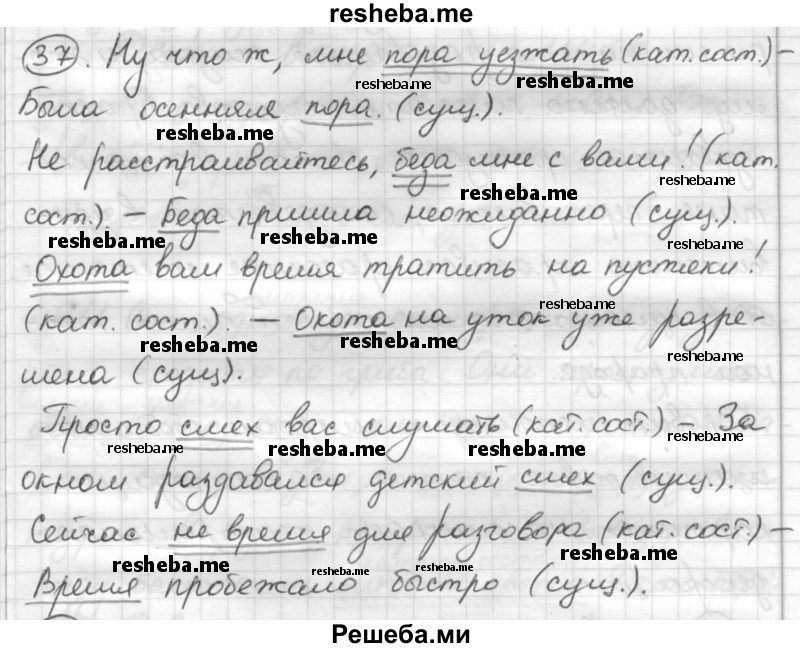 resheba.me
37. Ну что ж, мне пора уезжать (кат. сост.) –
resheba.me
Была осенняя пора. (сущ.).
resheba.me
Не расстраивайтесь, беда мне с вами! (кат.
resheba.me
resheba.me
сост.). – Беда пришла неожиданно (сущ.).
resheba.me resheba.me resheba.me
Охота вам время тратить на пустяки!
resheba.me
(кат. сост.). – Охота на уток уже разре-
resheba.me resheba.me resheba.me
шена (сущ).
Просто смех вас слушать (кат. сост.) – За
resheba.me resheba.me resheba.me resheba.me
окном раздавался детский смех (сущ.).
Сейчас не время для разговора (кат. сост.) –
resheba.me resheba.me resheba.me resheba.me
Время пробежало быстро (сущ.).
Решеба.ми